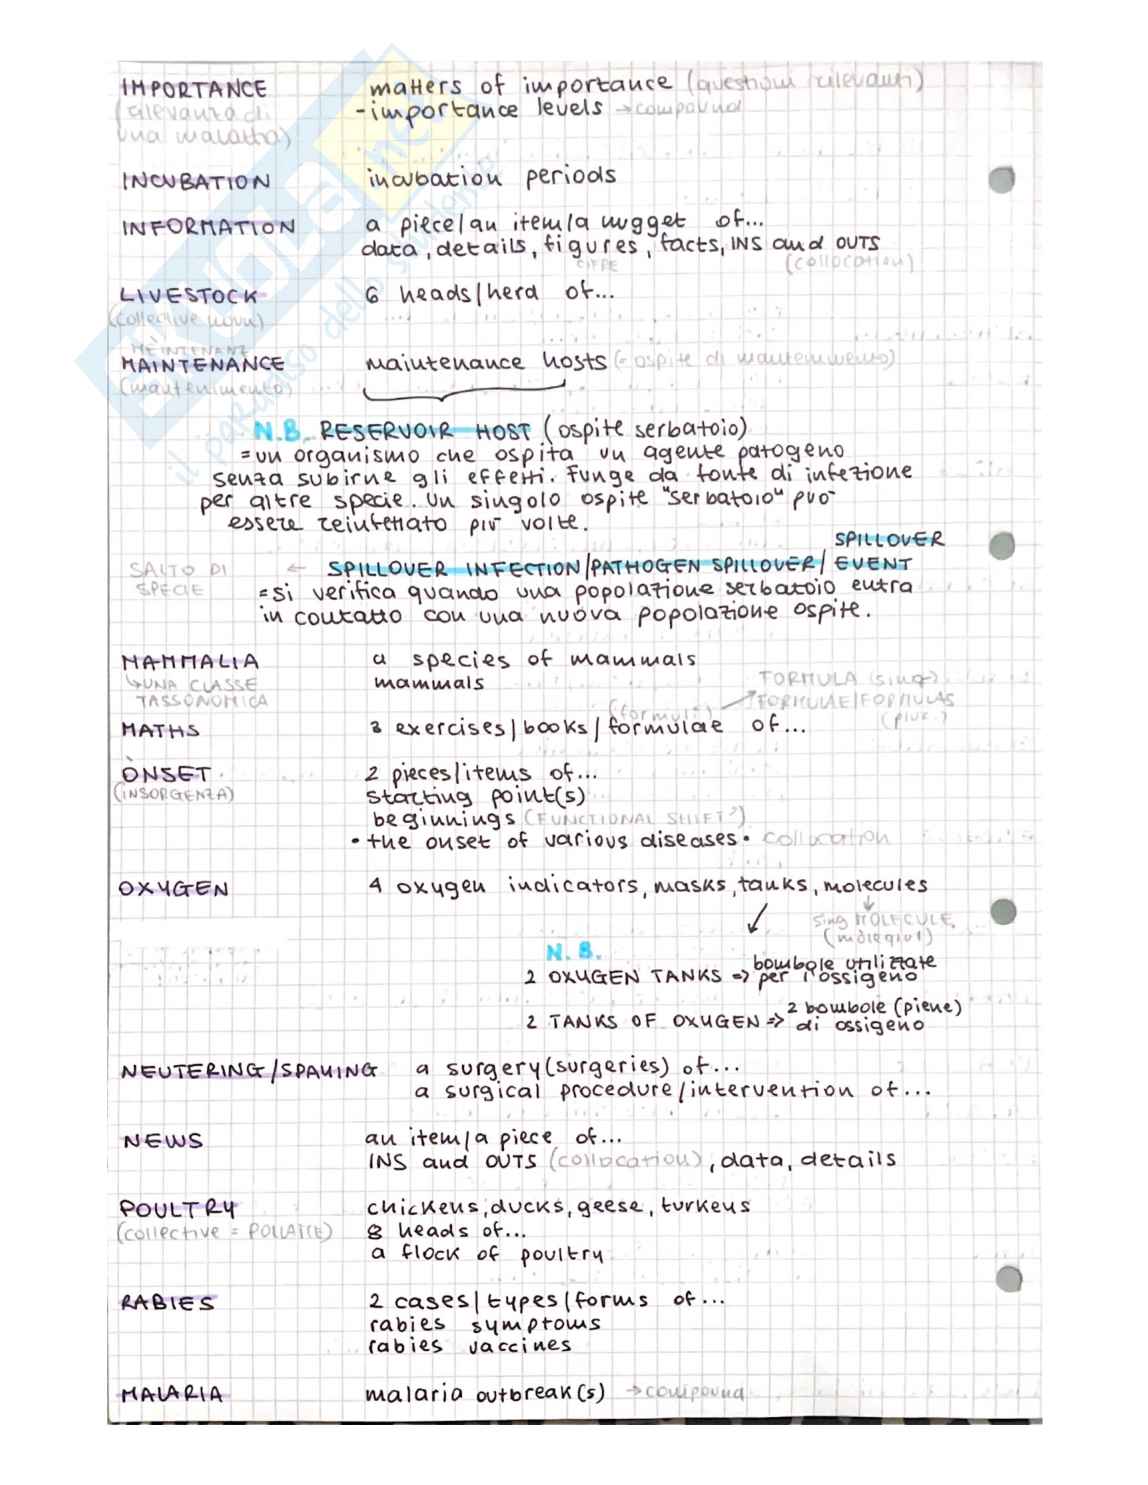 IMPORTANCE matters of importance (questioni rilevanti)
(rilevanza di - importance levels → compound
una malattia)
INCUBATION incubation periods
INFORMATION a piece/an item/a nugget of...
data, details, figures, facts, INS and OUTS
CIFRE (collocation)
LIVESTOCK 6 heads/herd of...
(collective noun)
MEINTENANZ
MAINTENANCE maintenance hosts (= ospite di mantenimento)
(mantenimento)
N.B. RESERVOIR HOST (ospite serbatoio)
= un organismo che ospita un agente patogeno
senza subirne gli effetti. Funge da fonte di infezione
per altre specie. Un singolo ospite "serbatoio" può
essere reinfettato più volte.
SPILLOVER
SALTO DI ← SPILLOVER INFECTION/PATHOGEN SPILLOVER/ EVENT
SPECIE = si verifica quando una popolazione serbatoio entra
in contatto con una nuova popolazione ospite.
MAMMALIA a species of mammals
↳ UNA CLASSE mammals FORMULA (sing)
TASSONOMICA (formule) → FORMULAE/FORMULAS
(plur.)
MATHS 3 exercises/books/formulae of...
ÒNSET 2 pieces/items of...
(INSORGENZA) starting point(s)
beginnings (FUNCTIONAL SHIFT?)
• the onset of various diseases • collocation
OXYGEN 4 oxygen indicators, masks, tanks, molecules
sing MOLECULE
(mòlegiul)
N.B.
2 OXYGEN TANKS => bombole utilizzate
per l'ossigeno
2 TANKS OF OXYGEN => 2 bombole (piene)
di ossigeno
NEUTERING/SPAYING a surgery (surgeries) of...
a surgical procedure/intervention of...
NEWS an item/a piece of...
INS and OUTS (collocation), data, details
POULTRY chickens, ducks, geese, turkeys
(collective = POLLAME) 8 heads of...
a flock of poultry
RABIES 2 cases/types/forms of...
rabies symptoms
rabies vaccines
MALARIA malaria outbreak(s) → compound
SKUOLA.net
il paradiso dello studente